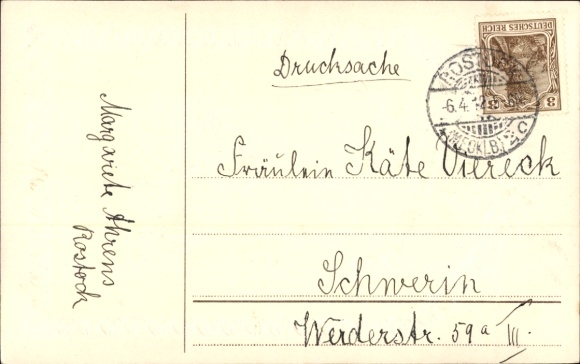 Drucksache
DEUTSCHES REICH
3 3
ROSTOCK
6.4.12
(MECKLB.) 2 c
Fräulein Käte Viereck
Schwerin
Werderstr. 59a III.
Margarete Ahrens
Rostock